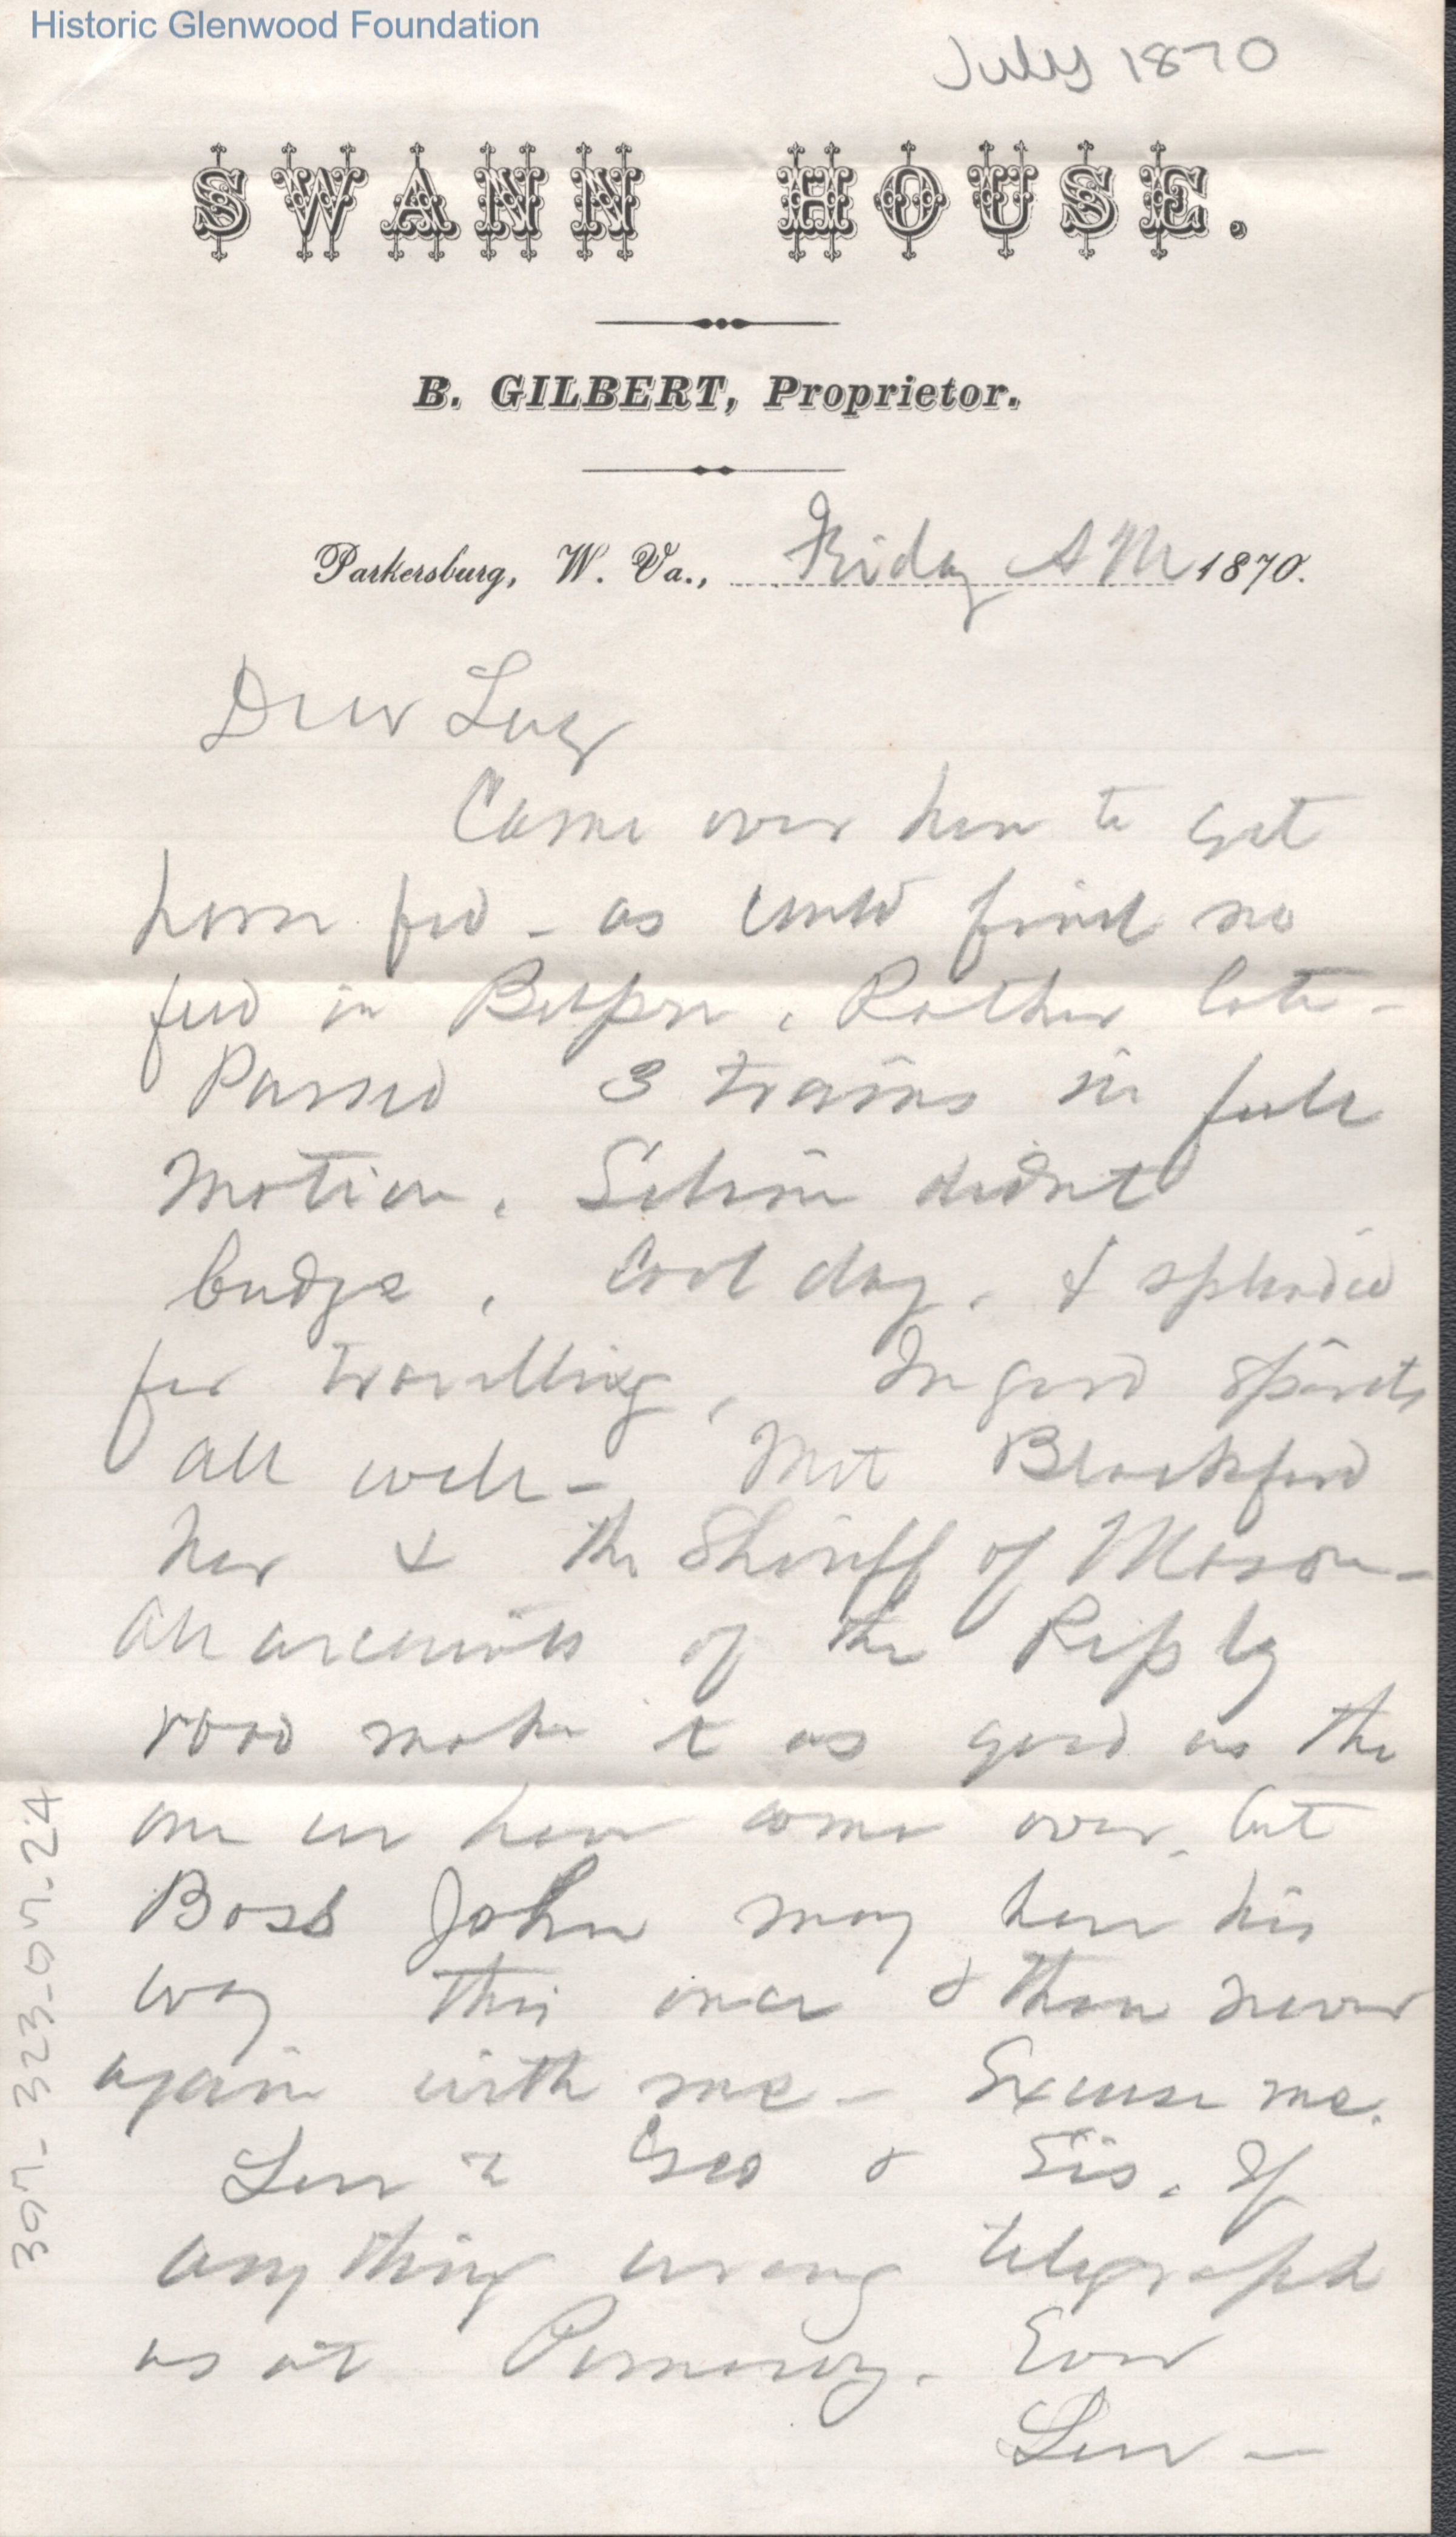 Historic Glenwood Foundation
July 1870
SWANN HOUSE.
B. GILBERT, Proprietor.
Parkersburg, W. Va., Friday AM 1870.
Dear Lucy
Came over here to get
horse fed - as could find no
feed in Belpre. Rather late -
Passed 3 trains in full
motion. Selim didnt
budge. Cool day. & splendid
for travelling. In good spirits
all well - Met Blackford
here & the Sheriff of Mason -
All accounts of the Ripley
road make it as good as the
one we have come over. but
Boss John may have his
way this once & then never
again with me - Excuse me.
Love to Geo & Sis. If
anything wrong telegraph
us at Pomeroy. Ever
397-323-07.24